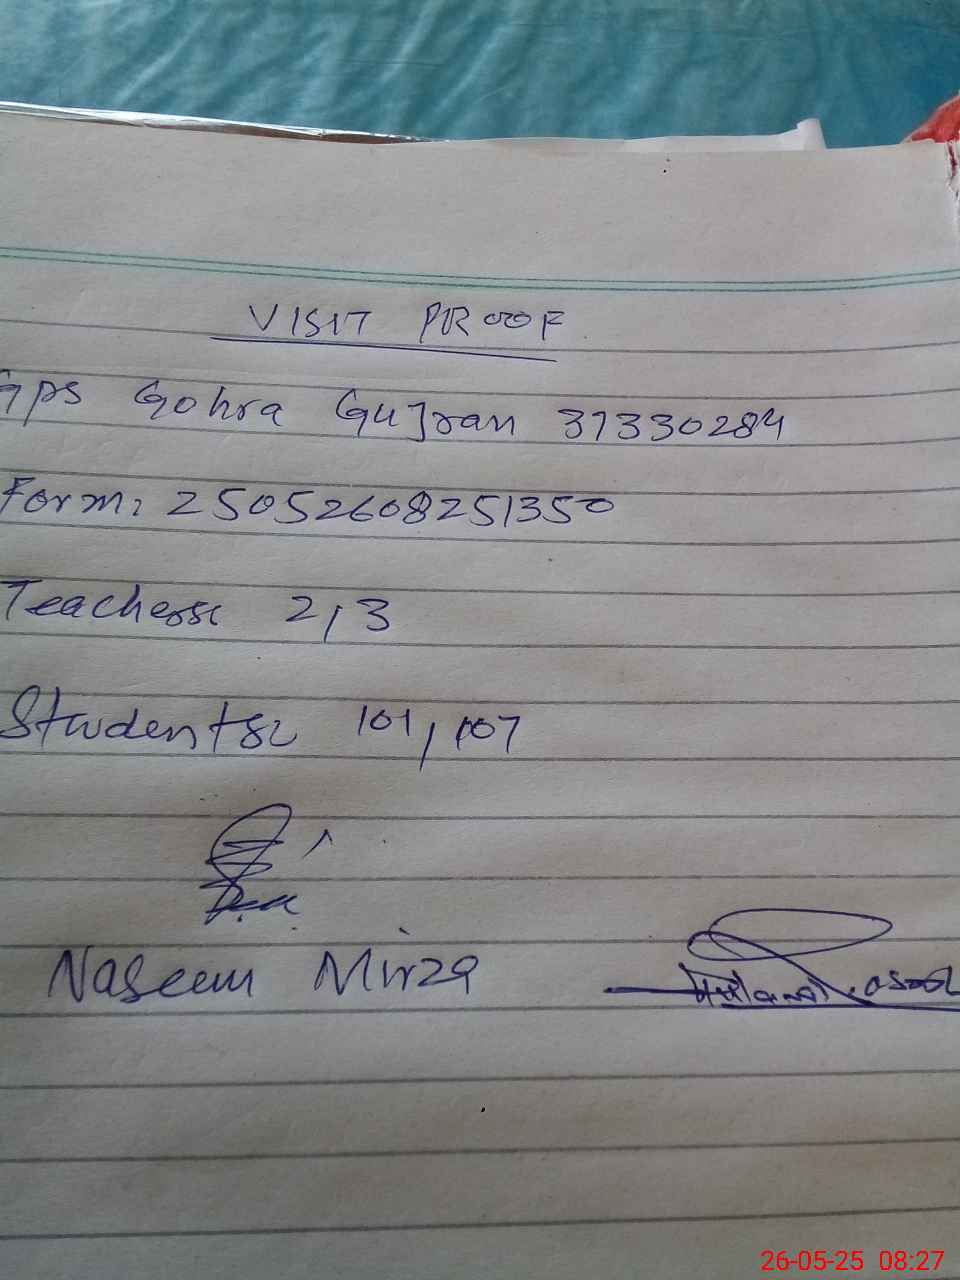 VISIT PROOF
Gps Gohra Gujran 37330284
Form: 25052608251350
Teachers: 2/3
Students: 101/107
Naseem Mirza
26-05-25 08:27